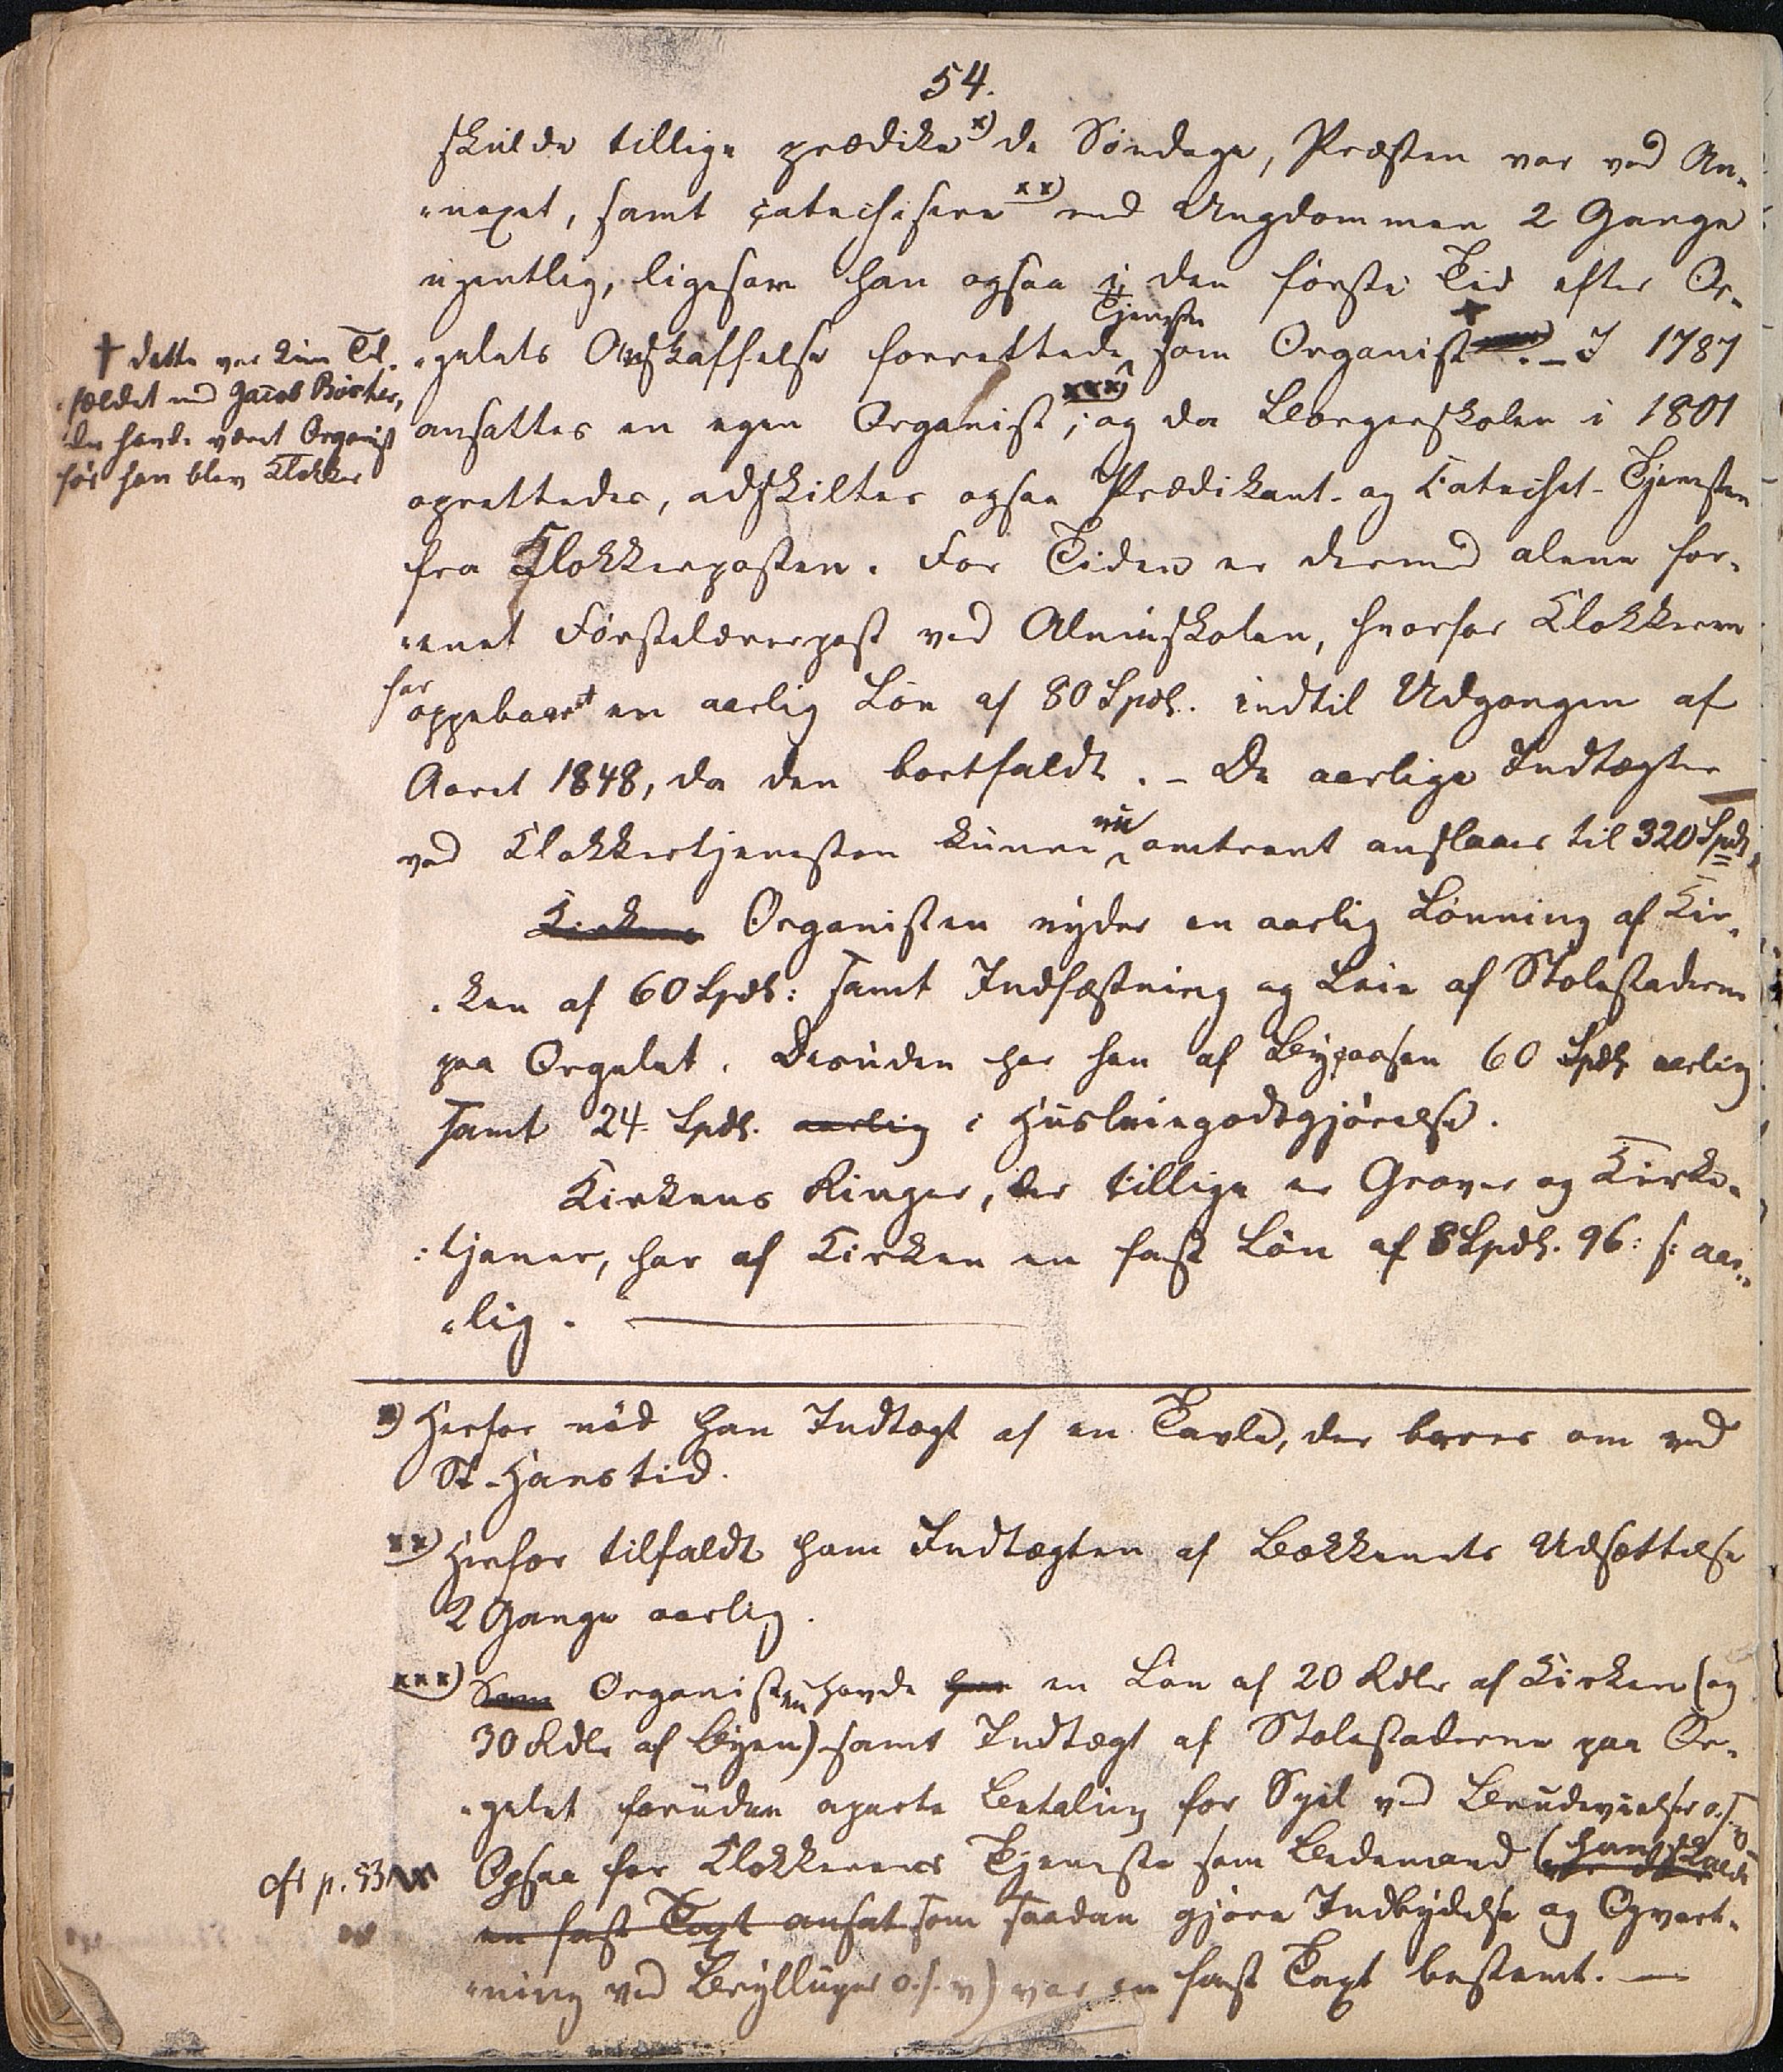 54.
skulde tillige prædike x) de Søndage, Præsten var ved An-
-nexet, samt catechisere xx) med Ungdommen 2 Gange
ugentlig, ligesom han ogsaa i den første Tid efter Or-
-gelets Anskaffelse forrettede Tjeneste som Organist. – I 1787
† dette var kun Til-
-fældet med Jacob Börker,
der havde været Organist
før han blev Klokker
ansattes en egen Organist xxx); og da Borgerskolen i 1801
oprettedes, adskiltes ogsaa Prædikant- og Catechet-Tjenesten
fra Klokkerposten. For Tiden er dermed alene for-
-enet Førstelærerpost ved Almuskolen, hvorfor Klokkeren
har oppebaaret en aarlig Løn af 80 Spdlr. indtil Udgangen af
Aaret 1848, da den bortfaldt. – De aarlige Indtægter
ved Klokkertjenesten kunne nu omtrent anslaaes til 320 Spdlr.
Kirkens Organisten nyder en aarlig Lønning af Kir-
-ken af 60 Spdlr: samt Indfæstning og Leie af Stolestaderne
paa Orgelet. Desuden har han af Bycassen 60 Spdlr aarlig
samt 24 Spdlr. aarlig i Huusleiegodtgjørelse.
Kirkens Ringer, der tillige er Graver og Kirke-
-tjener, har af Kirken en fast Løn af 8 Spdlr. 96: s: aar-
-lig.
x) Herfor nød han Indtægt af en Tavle, der bæres om ved
St. Hanstid.
xx) Herfor tilfaldt ham Indtægten af Bækkenets Udsættelse
2 Gange aarlig.
xxx) Som Organisten havde han en Løn af 20 Rdlr af Kirken (og
30 Rdlr af Byen) samt Indtægt af Stolestaderne paa Or-
-gelet foruden aparte Betaling for Spil ved Brudevielser o.s.v.
cfr p. 53 Ogsaa for Klokkerens Tjeneste som Bedemand (han skulde
en fast Taxt ansat som saadan gjøre Indbydelse og Opvart-
-ning ved Bryllüper o.s.v) var en fast Taxt bestemt. –